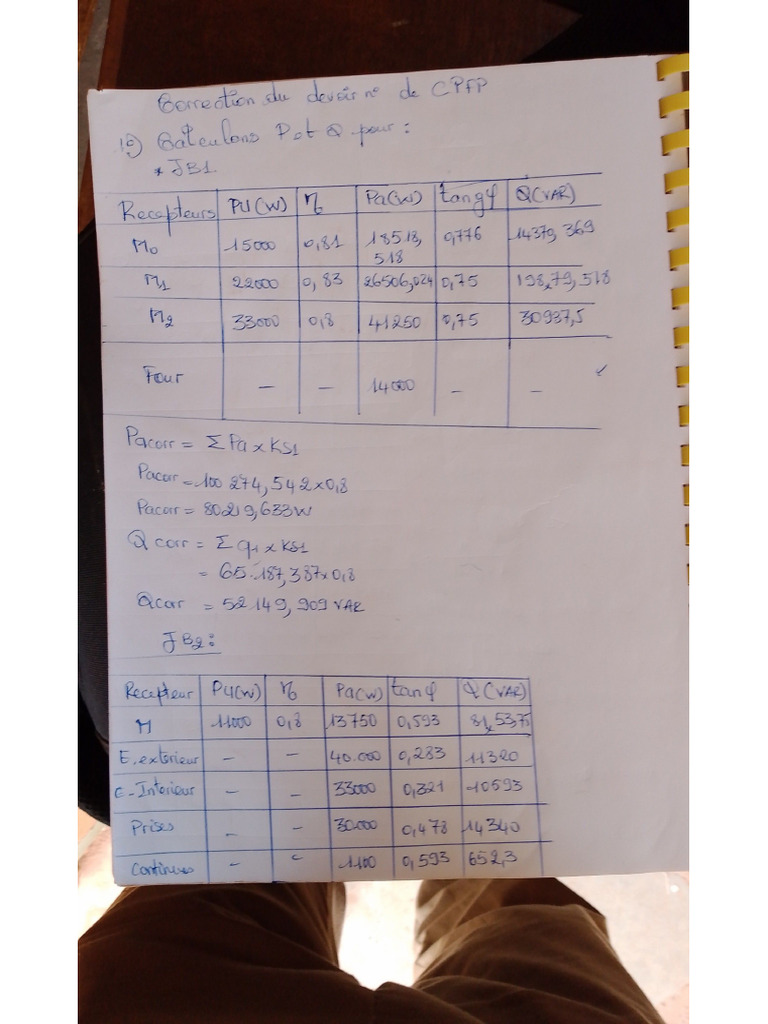 Correction du devoir n° de CPFP
1°) Calculons P et Q pour :
* JB1
Recepteurs PU(W) η Pa(W) tangφ Q(VAR)
M0 15000 0,81 18518,518 0,776 14379,369
M1 22000 0,83 26506,024 0,75 19879,518
M2 33000 0,8 41250 0,75 30937,5
Four — — 14000 — —
Pacorr = ΣPa x KS1
Pacorr = 100 274,542 x 0,8
Pacorr = 80219,633W
Q corr = Σ q1 x KS1
= 65187,387 x 0,8
Qcorr = 52 149,909 VAR
JB2 :
Recepteur PU(W) η Pa(W) tanφ Q(VAR)
M 11000 0,8 13750 0,593 8153,75
E. exterieur — — 40.000 0,283 11320
E-Interieur — — 33000 0,321 10593
Prises — — 30.000 0,478 14340
— — 1100 0,593 652,3